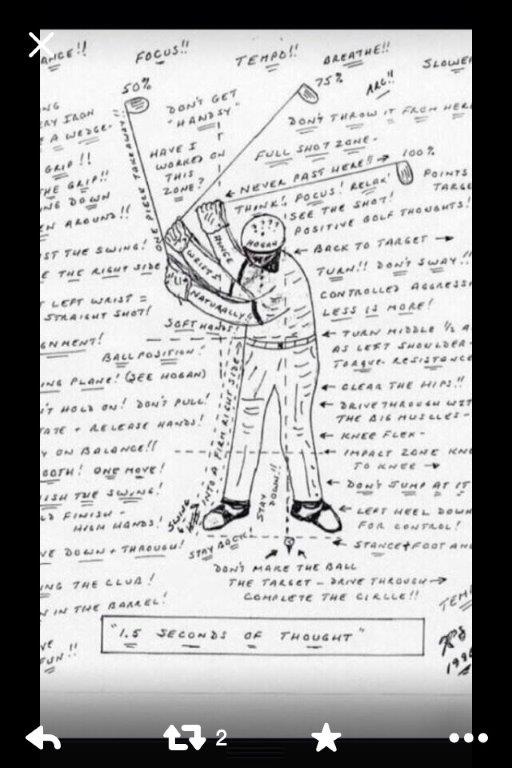 ANCE!! FOCUS!! TEMPO!! BREATHE!! SLOWER
50% 75% ARC!!
DON'T GET
"HANDSY"
DON'T THROW IT FROM HER
ING
RY IRON
E A WEDGE-
ONE PIECE TAKEAWAY!!
HAVE I
WORKED ON
THIS
ZONE?
FULL SHOT ZONE-
100%
← NEVER PAST HERE!! →
GRIP!!
HE GRIP!!
NG DOWN
EN AROUND!!
THINK! FOCUS! RELAX!
SEE THE SHOT!
POSITIVE GOLF THOUGHTS!
POINTS
TARGE
????
HOGAN
HINGE
WRISTS
NATURALLY!!
IST THE SWING!
E THE RIGHT SIDE
← BACK TO TARGET →
TURN!! DON'T SWAY!!
T LEFT WRIST =
STRAIGHT SHOT!
CONTROLLED AGGRESS
LESS IS MORE!
SOFT HANDS!
GNMENT!
BALL POSITION!
← TURN MIDDLE 1/2 A
AS LEFT SHOULDER-
TORQUE- RESISTANCE
ING PLANE! (SEE HOGAN)
← CLEAR THE HIPS!!
'T HOLD ON! DON'T PULL!
← DRIVE THROUGH WIT
THE BIG MUSCLES-
TATE + RELEASE HANDS!
← KNEE FLEX-
Y ON BALANCE!!
← IMPACT ZONE KNE
TO KNEE →
OOTH! ONE MOVE!
INTO A FIRM RIGHT SIDE
STAY DOWN!!
← DON'T JUMP AT IT
ISH THE SWING!
LD FINISH-
HIGH HANDS!
SWING
← LEFT HEEL DOWN
FOR CONTROL!
VE DOWN + THROUGH!
STAY BACK
← STANCE + FOOT AN
DON'T MAKE THE BALL
THE TARGET - DRIVE THROUGH →
COMPLETE THE CIRCLE!!
ING THE CLUB!
N IN THE BARREL!
TEMP
"1.5 SECONDS OF THOUGHT"
VE
FUN!!
2